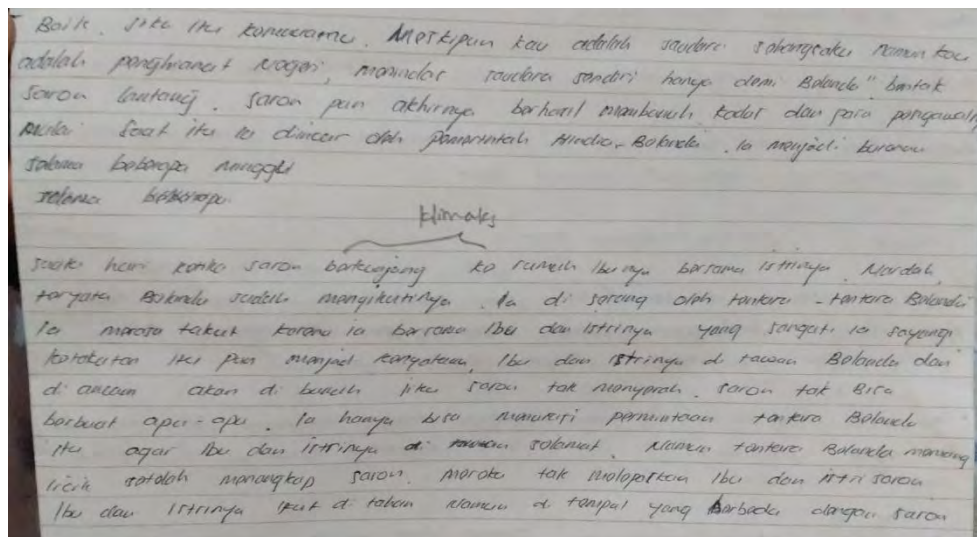 Baik. Jika itu kemauanmu. Meskipun kau adalah saudara sebangsaku namun kau
adalah penghianat Negeri, menindas saudara sendiri hanya demi Belanda" bentak
Saron lantang. Saron pun akhirnya berhasil membunuh Kadar dan para pengawalnya
Mulai Saat itu Ia diincar oleh pemerintah Hindia-Belanda. Ia menjadi buronan
selama beberapa minggu
selama beberapa
klimaks
suatu hari ketika saron berkunjung ke rumah Ibunya bersama istrinya Nardah,
ternyata Belanda sudah mengikutinya. Ia di serang oleh tentara-tentara Belanda
Ia merasa takut karena Ia bersama Ibu dan istrinya yang sangat Ia sayangi
ketakutan itu pun menjadi kenyataan, Ibu dan istrinya di tawan Belanda dan
di ancam akan di bunuh jika saron tak menyerah. saron tak Bisa
berbuat apa-apa. Ia hanya bisa menuruti permintaan tentara Belanda
itu agar Ibu dan istrinya di selamat. Namun tentara Belanda memang
licik setelah menangkap saron. mereka tak melepaskan Ibu dan istri saron
Ibu dan istrinya ikut di tahan Namun di tempat yang Berbeda dengan saron